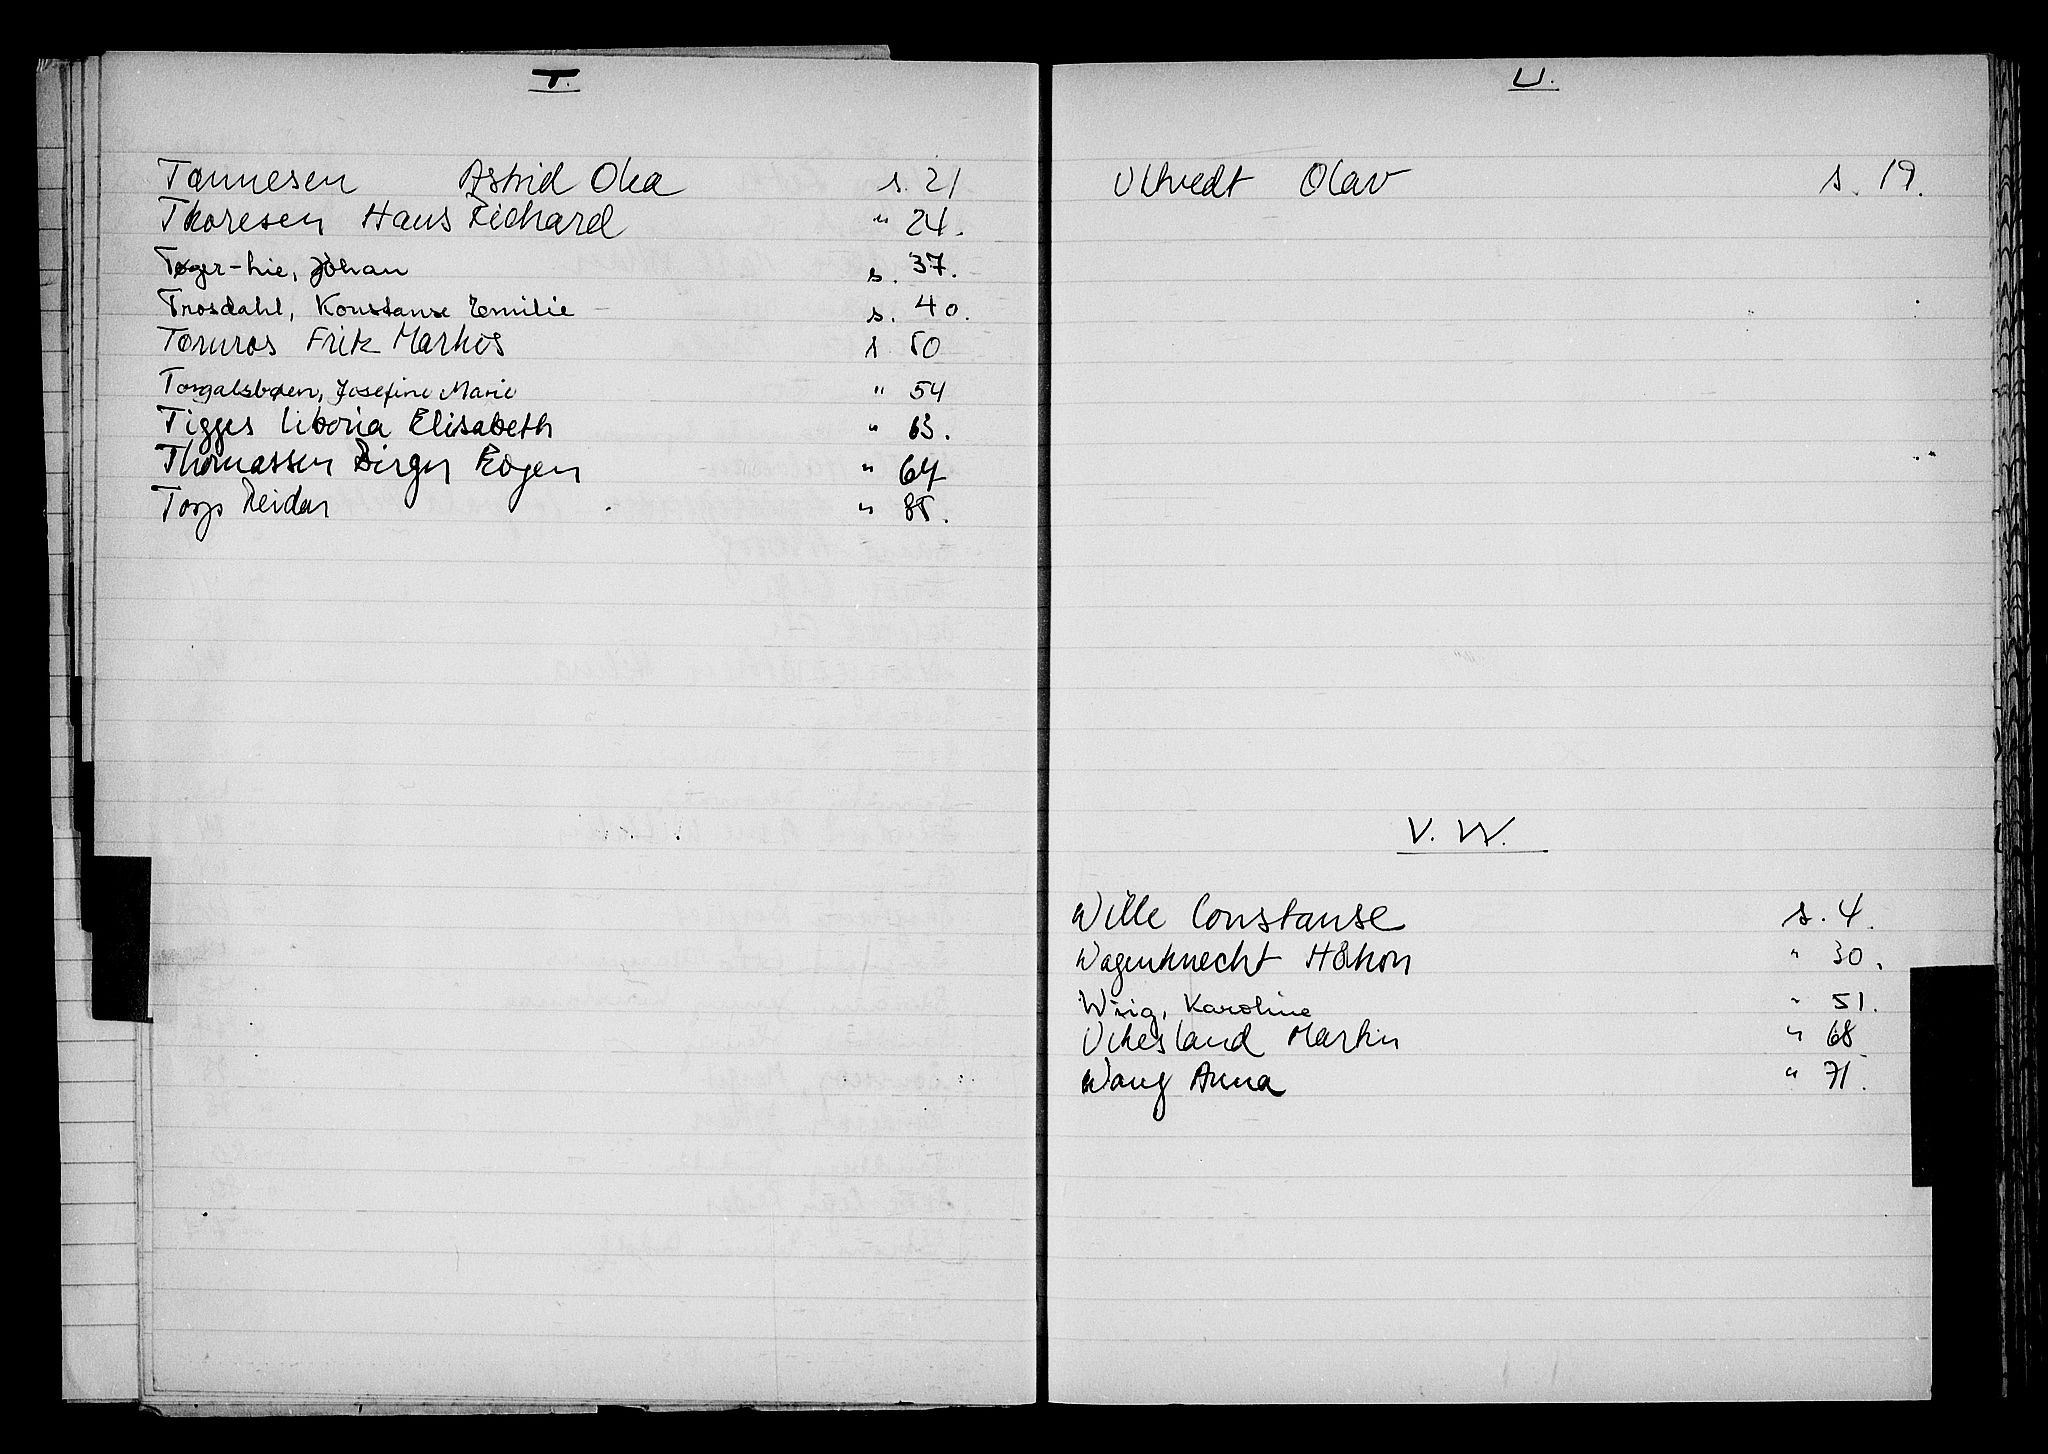 T.
Tønnesen Astrid Olea s. 21
Thoresen Hans Richard " 24.
Tøger-lie, Johan s. 37.
Trosdahl, Konstanse Emilie s. 40.
Tornros Fritz Markus s 50
Torgalsbøen, Josefine Marie " 54
Tigges Liboria Elisabeth " 63.
Thomassen Birger Eogen " 67
Torp Reidar " 85.
U.
Ulhvedt Olav s. 19.
V. W.
Wille Constanse s. 4.
Wagenknecht Håkon " 30.
Wiig, Karoline " 51.
Vikesland Martin " 68
Wang Anna " 71.